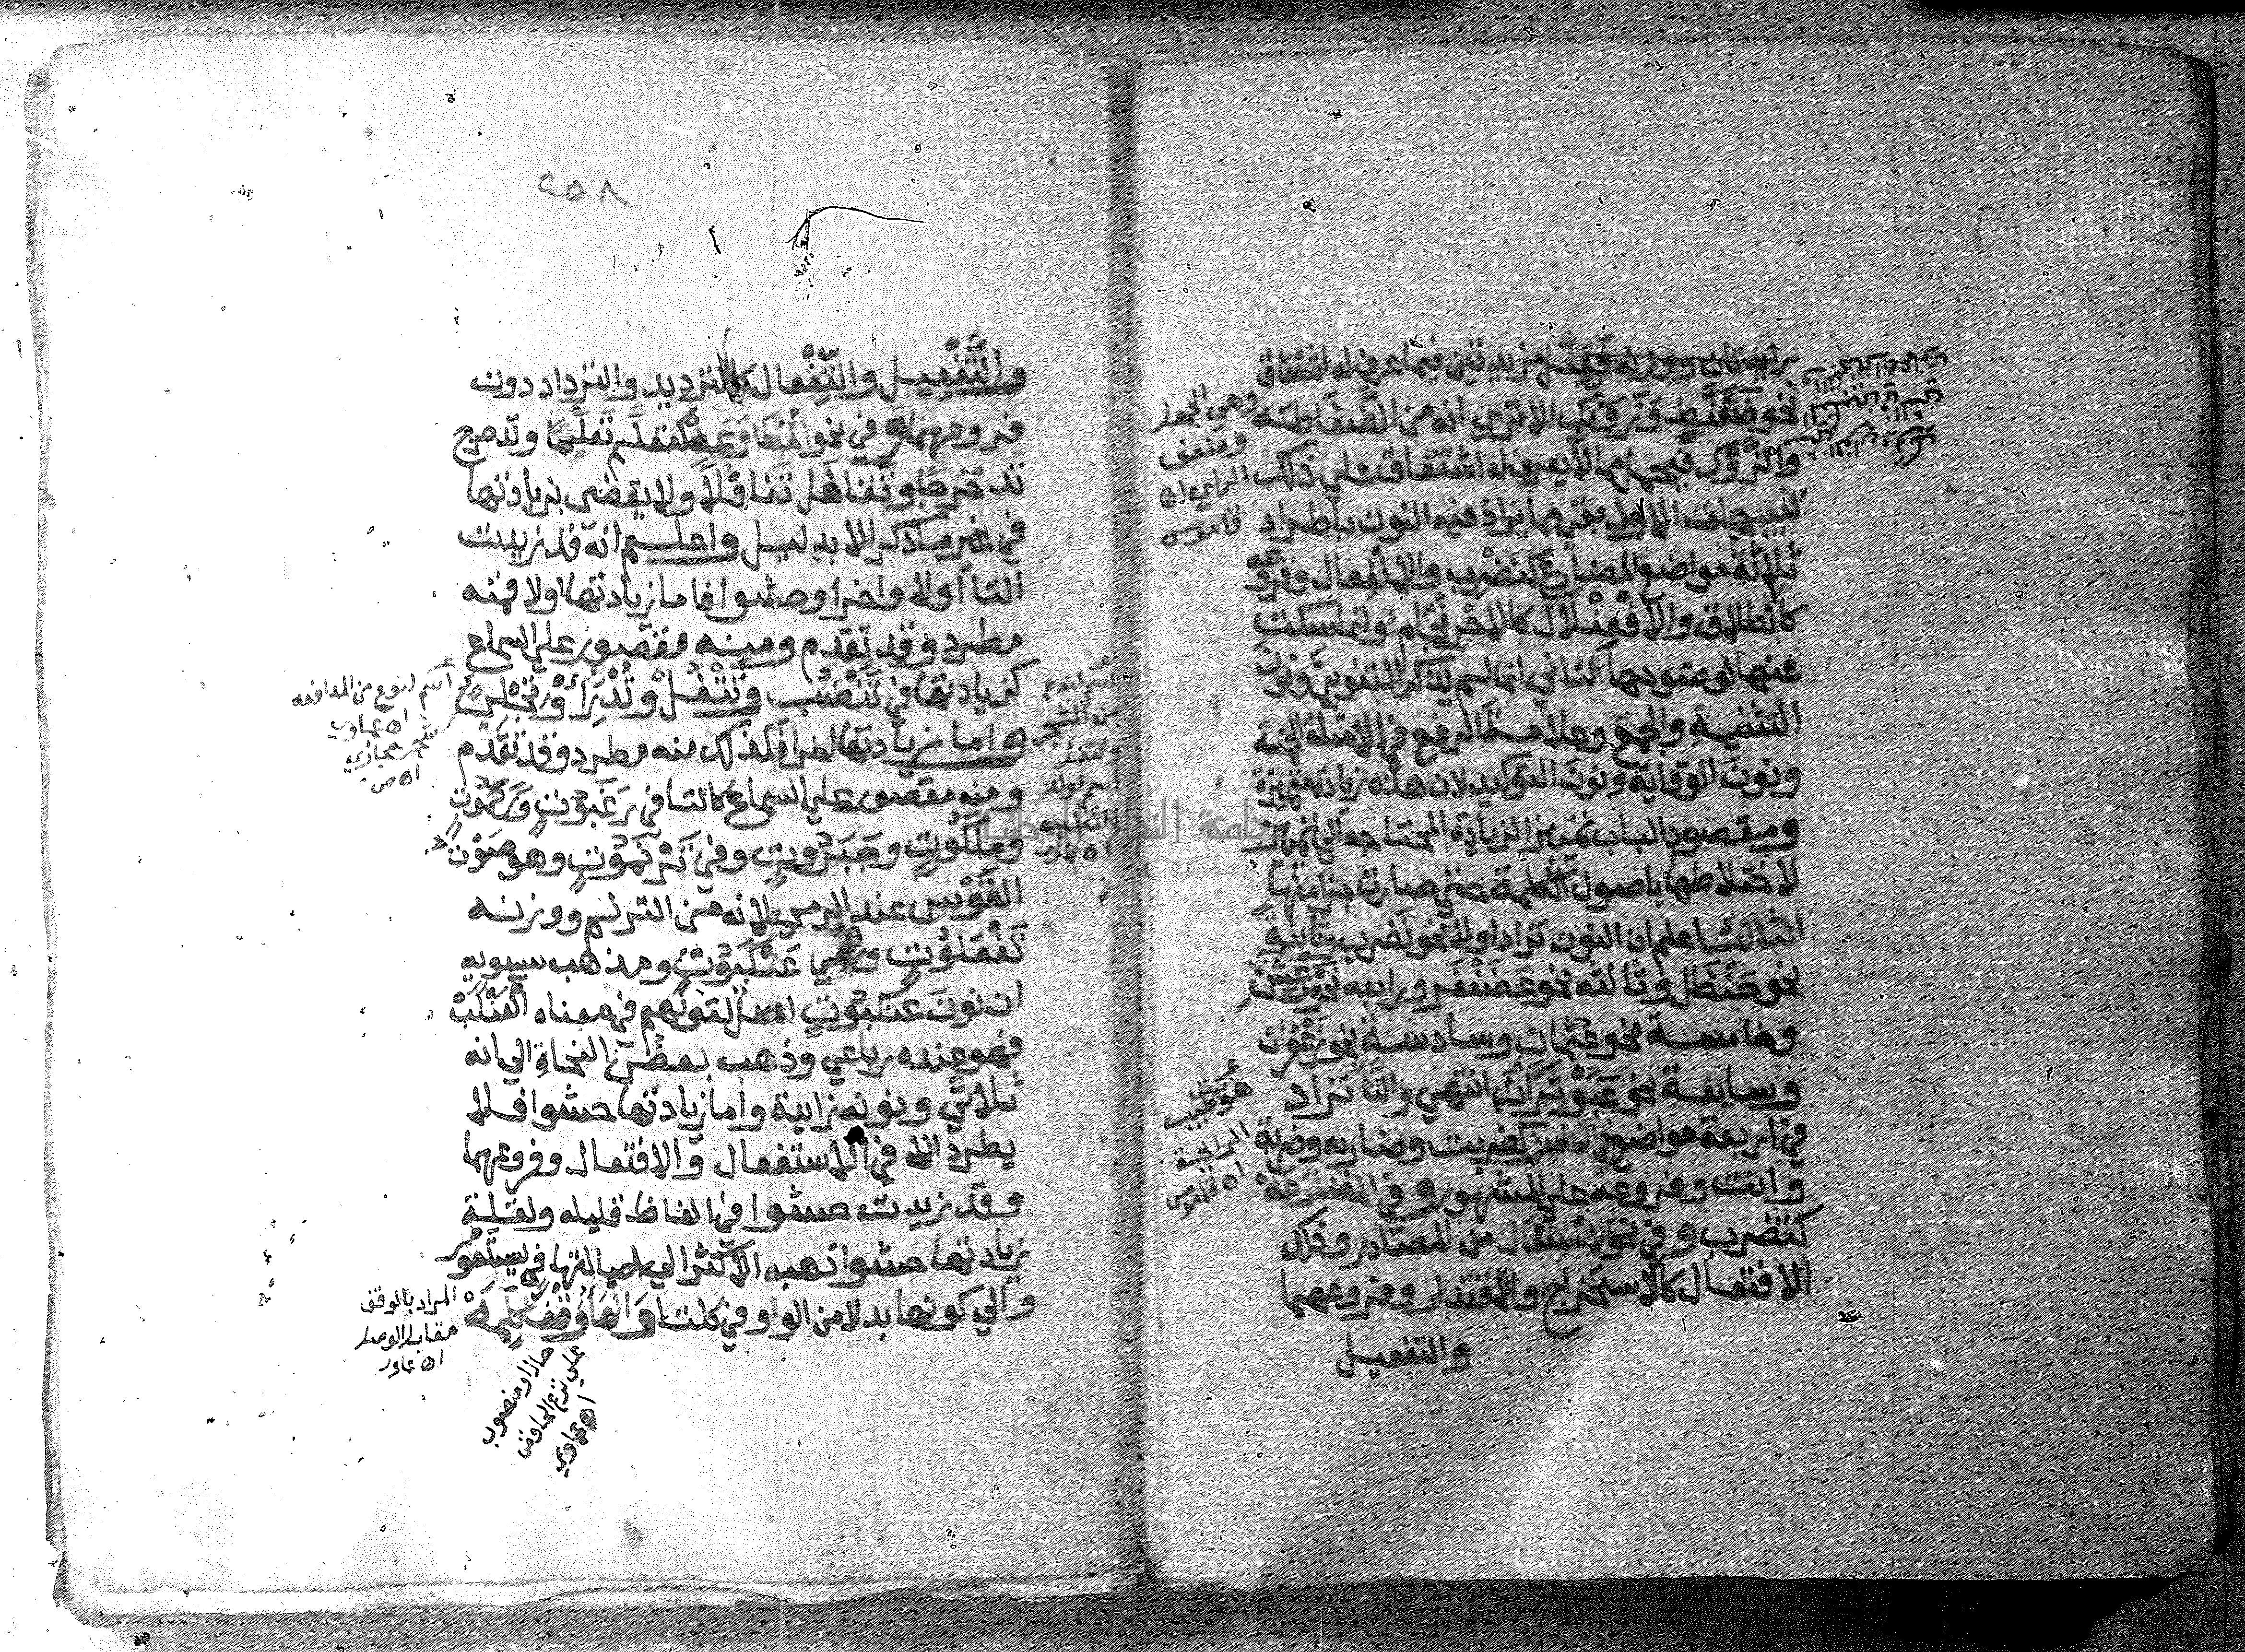 زايدتان ووزنه فعنل مزيدتين فيما عرف له اشتقاق
نحو ضفنط وزونك الا تري انه من الضفاطه
والزوك فيحمل ما لا يعرف له اشتقاق علي ذلك
تنبيهات الاول بقي مما تزاد فيه النون باطراد
ثلاثة مواضع المضارع كنضرب والانفعال وفروعه
كانطلاق والافعنلال كالاحرنجام وانما سكت
عنها لوضوحها الثاني انما لم يذكر التنوين ونون
التثنية والجمع وعلامة الرفع في الامثلة الخمسة
ونون الوقاية ونون التوكيد لان هذه زيادة متميزة
ومقصود الباب تمييز الزيادة المحتاجه الي تمييز
لاختلاطها باصول الكلمة حتي صارت جزا منها
الثالث اعلم ان النون تزاد اولا نحو نضرب وثانية
نحو حنظل وثالثه نحو غضنفر ورابعه نحو رعشن
وخامسة نحو عثمان وسادسة نحو زعفران
وسابعة نحو عبوثران انتهي والتا تزاد
في اربعة مواضع في التانيث كضربت وضاربه وضربة
وانت وفروعه علي المشهور وفي المضارعه
كتضرب وفي نحو الاستفعال من المصادر وذلك
الافتعال كالاستخراج والاقتدار وفروعهما
والتفعيل
وهي الجهل
وضعف
الراي اه
قاموس
هو نبت
طيب
الرايحة
اه قاموس
٢٥٨
والتفعيل والتفعال كالترديد والترداد دون
فروعهما وفي نحو المطاوعة كتعلم تعلما وتدحرج
تدحرجا وتغافل تغافلا ولا يقضي بزيادتها
في غير ما ذكر الا بدليل واعلم انه قد زيدت
التا اولا واخرا وحشوا فاما زيادتها اولا فمنه
مطرد وقد تقدم ومنه مقصور علي السماع
كزيادتها في تنضب وتتفل وتدرا وتحلي
واما زيادتها اخرا فكذلك منه مطرد وقد تقدم
ومنه مقصور علي السماع كالتا في رغبوت ورحموت
وملكوت وجبروت وفي ترنموت وهو صوت
القوس عند الرمي لانه من الترنم ووزنه
تفعلوت وفي عنكبوت ومذهب سيبويه
ان نون عنكبوت اصل لقولهم في معناه العنكب
فهو عنده رباعي وذهب بعض النحاة الي انه
ثلاثي ونونه زايدة واما زيادتها حشوا فلا
يطرد الا في الاستفعال والافتعال وفروعهما
وقد زيدت حشوا في الفاظ قليله ولقلة
زيادتها حشوا ذهب الاكثر الي اصالتها في يستعور
والي كونها بدلا من الواو في كلتا والها وقفا كلمه
اسم لنوع
من الشجر
وتتفل
اسم لولد
الثعلب
اسم لنوع من المدافعه
المراد بالوقف
مقابل الوصل
حال او منصوب
علي نزع الخافض